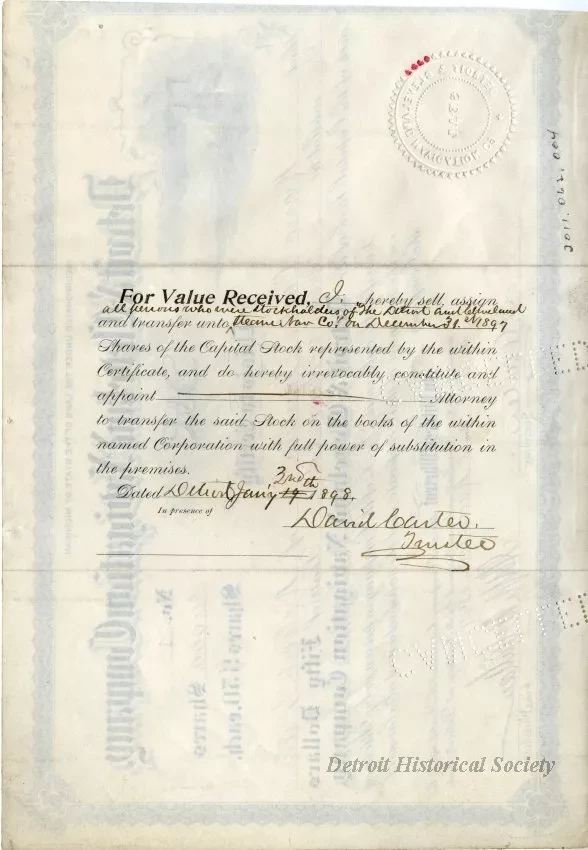 2011.062.004
For Value Received, I, hereby sell, assign
all persons who were Stockholders of The Detroit and Cleveland
and transfer unto Steam Nav Co. on December 31st 1897
Shares of the Capital Stock represented by the within
Certificate, and do hereby irrevocably constitute and
appoint Attorney
to transfer the said Stock on the books of the within
named Corporation with full power of substitution in
the premises.
Dated Detroit, Jan'y 3rd 19th 1898.
In presence of
David Carter,
Trustee
CANCELLED
CANCELLED
Detroit Historical Society